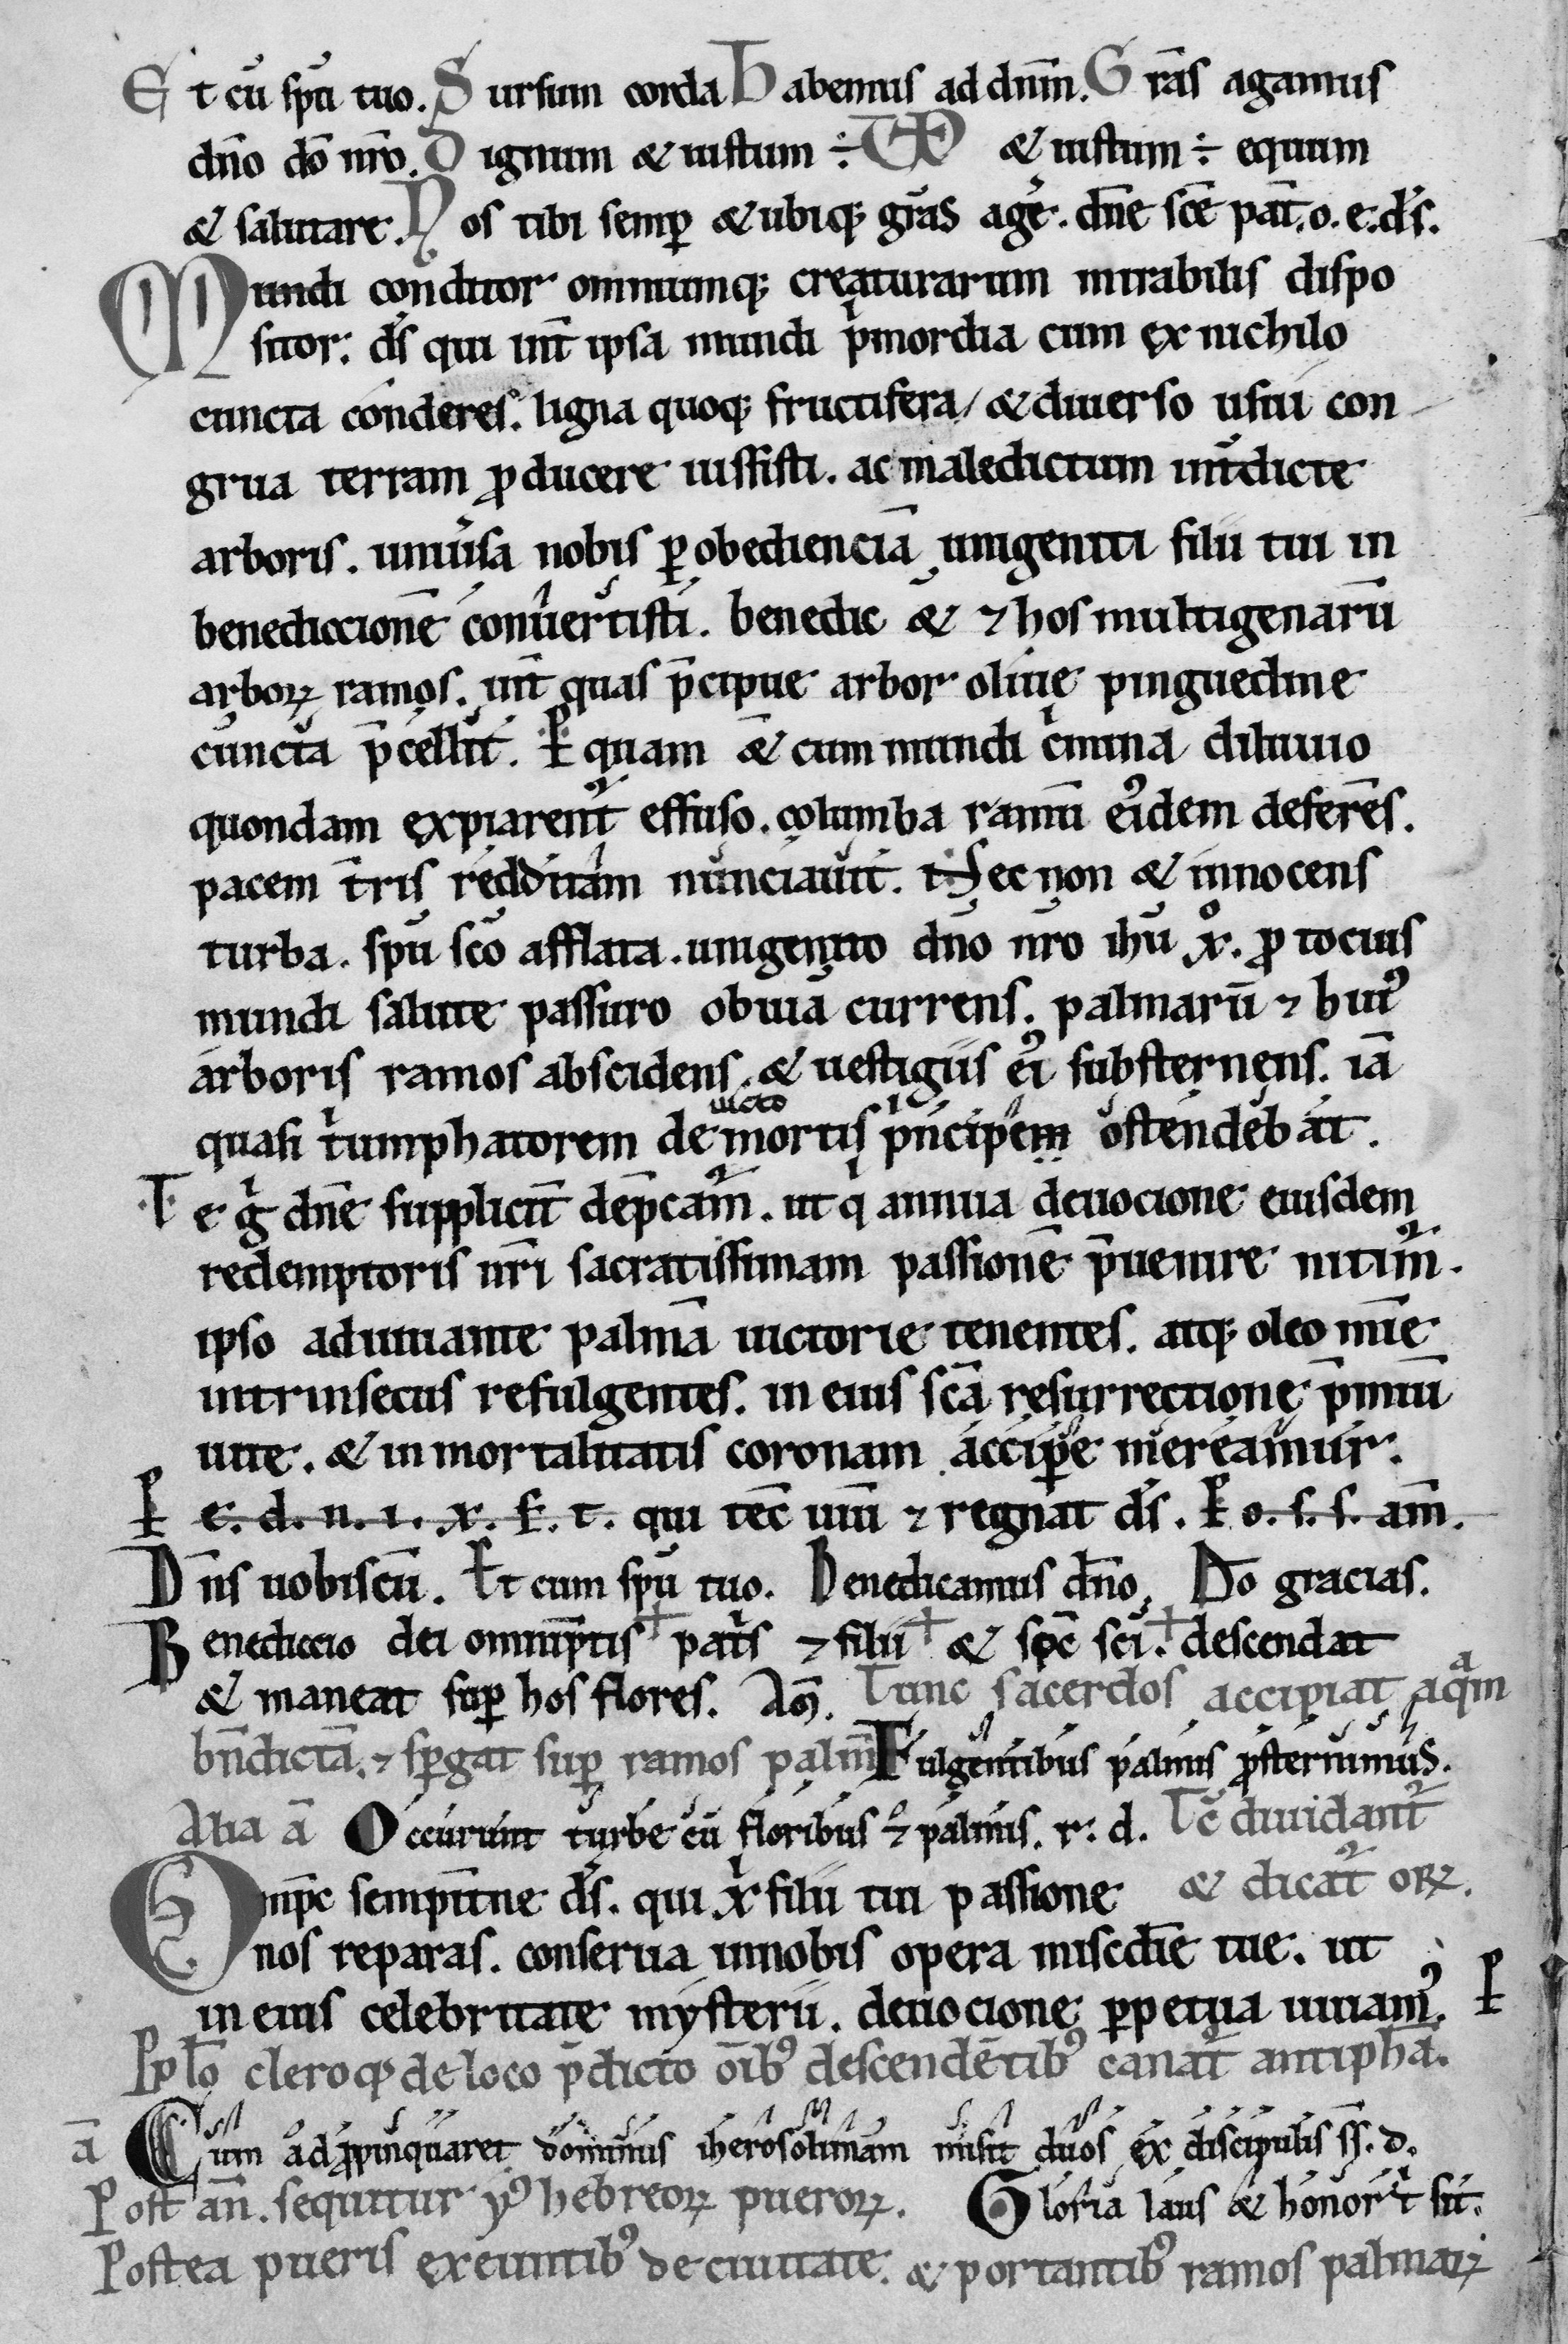 Et cū spū tuo. Sursum corda Habemus ad dn̄m. Gr̄as agamus
dn̄o dō nr̄o. Dignum & iustum ÷ VD & iustum ÷ equum
& salutare. Nos tibi semꝑ & ubiqꝫ gr̄as agē. dn̄e sc̄e pat̄. o. e. d̄s.
Mundi conditor omniumqꝫ creaturarum mirabilis dispo
sitor: d̄s qui int̄ ipsa mundi pͥmordia cum ex nichilo
cuncta conderes. ligna quoqꝫ fructifera / & diuerso usui con
grua terram ꝓducere iussisti. ac maledictum int̄dicte
arboris. uniu̓sa nobis ꝑ obedienciā unigeniti filii tui in
benediccionē conuertisti. benedic & ⁊ hos multigenarū
arboꝝ ramos. int̄ quas p̄cipue arbor oliue pinguedine
cuncta p̄cellit. Per quam & cum mundi cͥmina diluuio
quondam expiarent᷑ effuso. columba ramū eiꝰdem deferēs.
pacem t̄ris redditam nunciauit. Necnon & innocens
turba. spū scō afflata. unigenito dn̄o nr̄o ihū xͦ. ꝓ tocius
mundi salute passuro obuiā currens. palmarū ⁊ huiꝰ
arboris ramos abscidens. & uestigiis eiꝰ substernens. iā
quasi tͥumphatorem de uicto mortis pͥncipem ostendebat.
Te gͥ dn̄e supplicit̄ dep̄cam᷑. ut q annua deuocione eiusdem
redemptoris nr̄i sacratissimam passionē p̄uenire nitim᷑.
ipso adiuuante palmā uictorie tenentes. atqꝫ oleo mīe
intrinsecus refulgentes. in eius scā resurrectione p̄miū
uite. & inmortalitatis coronam accipe mereamur.
P e. d. n. i. x. f. t. qui tec̄ uiuī ⁊ regnat d̄s. P o. s. s. am̄.
Dn̄s uobiscū. Et cum spū tuo. Benedicamus dn̄o. Dō gracias.
Benediccio dei omnip̄tis + patͥs ⁊ filii + & spc̄ sci. + descendat
& maneat suꝑ hos flores. Am̄. Tunc sacerdos accipiat aqᵃm
bn̄dictā. ⁊ sꝑgat suꝑ ramos palm̄ Fulgentibus palmis ꝓsternimus.
Alia ā Occurunt turbe cū floribus ⁊ palmis. r. d. Tc̄ diuidant᷑
Omp̄c sempit̄ne d̄s. qui xͥ filii tui passione & dicat᷑ oꝝ.
nos reparas. conserua in nobis opera miscdīe tue. ut
in eius celebritate mysterii. deuocione ꝑpetua uiuamꝰ. P
Pplō cleroqꝫ de loco p̄dicto oībꝰ descendētibꝰ canat᷑ antiphā.
ā Cum adꝓpinquaret dominus iherosolimam misit duos ex discipulis ss. d.
Post an̄. sequitur yꝰ hebreoꝝ pueroꝝ. Gloria laus & honor tͥ sit.
Postea pueris exeuntibꝰ de ciuitate. & portantibꝰ ramos palmaꝝ